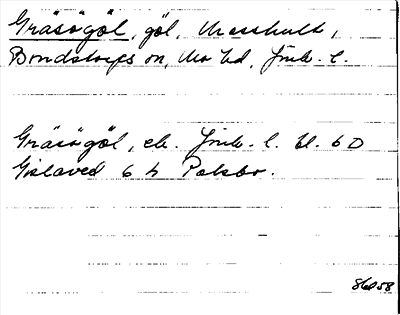 Gräsögöl, göl, Mosshult,
Bondstorps sn, Mo hd, Jönk. l.
Gräsögöl, ek. Jönk. l. bl. 6D
Gislaved 6 h
86058